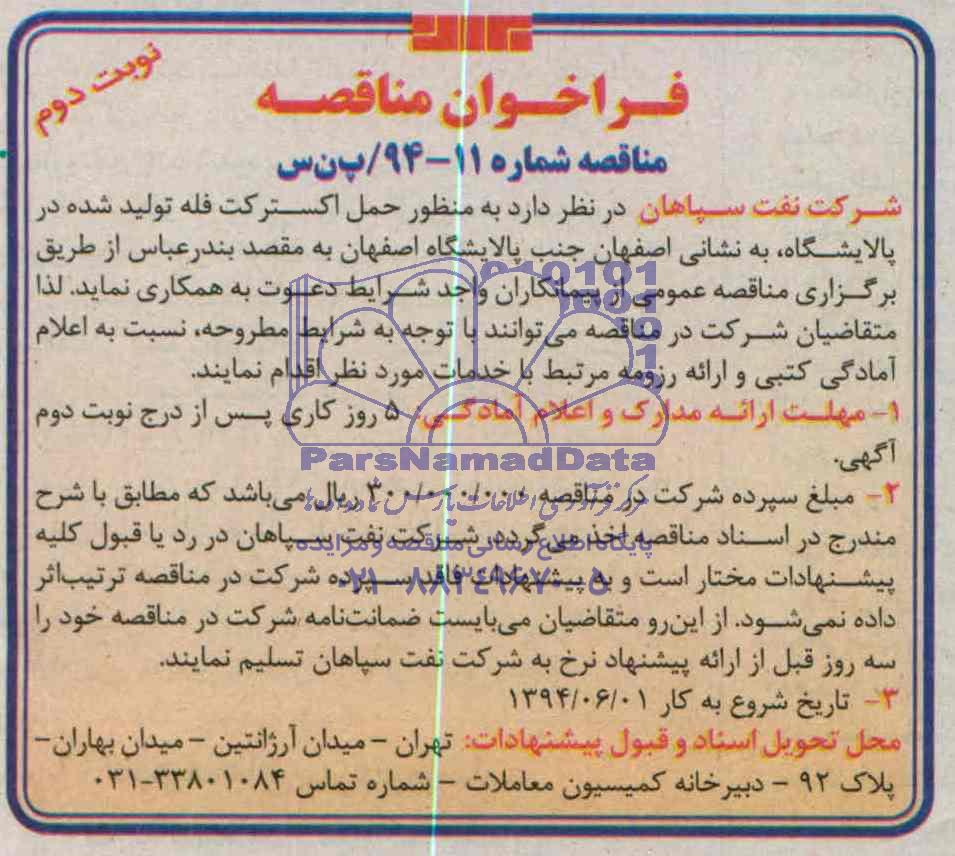 نوبت دوم
فراخوان مناقصه
مناقصه شماره ۱۱-۹۴/پ‌ن‌س
شرکت نفت سپاهان در نظر دارد به منظور حمل اکسترکت فله تولید شده در
پالایشگاه، به نشانی اصفهان جنب پالایشگاه اصفهان به مقصد بندرعباس از طریق
برگزاری مناقصه عمومی از پیمانکاران واجد شرایط دعوت به همکاری نماید. لذا
متقاضیان شرکت در مناقصه می‌توانند با توجه به شرایط مطروحه، نسبت به اعلام
آمادگی کتبی و ارائه رزومه مرتبط با خدمات مورد نظر اقدام نمایند.
۱- مهلت ارائه مدارک و اعلام آمادگی: ۵ روز کاری پس از درج نوبت دوم
آگهی.
ParsNamadData
۲- مبلغ سپرده شرکت در مناقصه ۳۰۰/۰۰۰/۰۰۰ ریال می‌باشد که مطابق با شرح
مرکز فرآوری اطلاعات پارس نماد داده‌ها
مندرج در اسناد مناقصه اخذ می‌گردد. شرکت نفت سپاهان در رد یا قبول کلیه
پایگاه اطلاع رسانی مناقصه و مزایده
پیشنهادات مختار است و به پیشنهادات فاقد سپرده شرکت در مناقصه ترتیب‌اثر
۰۲۱-۸۸۳۴۹۶۷۰-۵
داده نمی‌شود. از این‌رو متقاضیان می‌بایست ضمانت‌نامه شرکت در مناقصه خود را
سه روز قبل از ارائه پیشنهاد نرخ به شرکت نفت سپاهان تسلیم نمایند.
۳- تاریخ شروع به کار ۱۳۹۴/۰۶/۰۱
محل تحویل اسناد و قبول پیشنهادات: تهران - میدان آرژانتین - میدان بهاران-
پلاک ۹۲ - دبیرخانه کمیسیون معاملات - شماره تماس ۳۳۸۰۱۰۸۴-۰۳۱